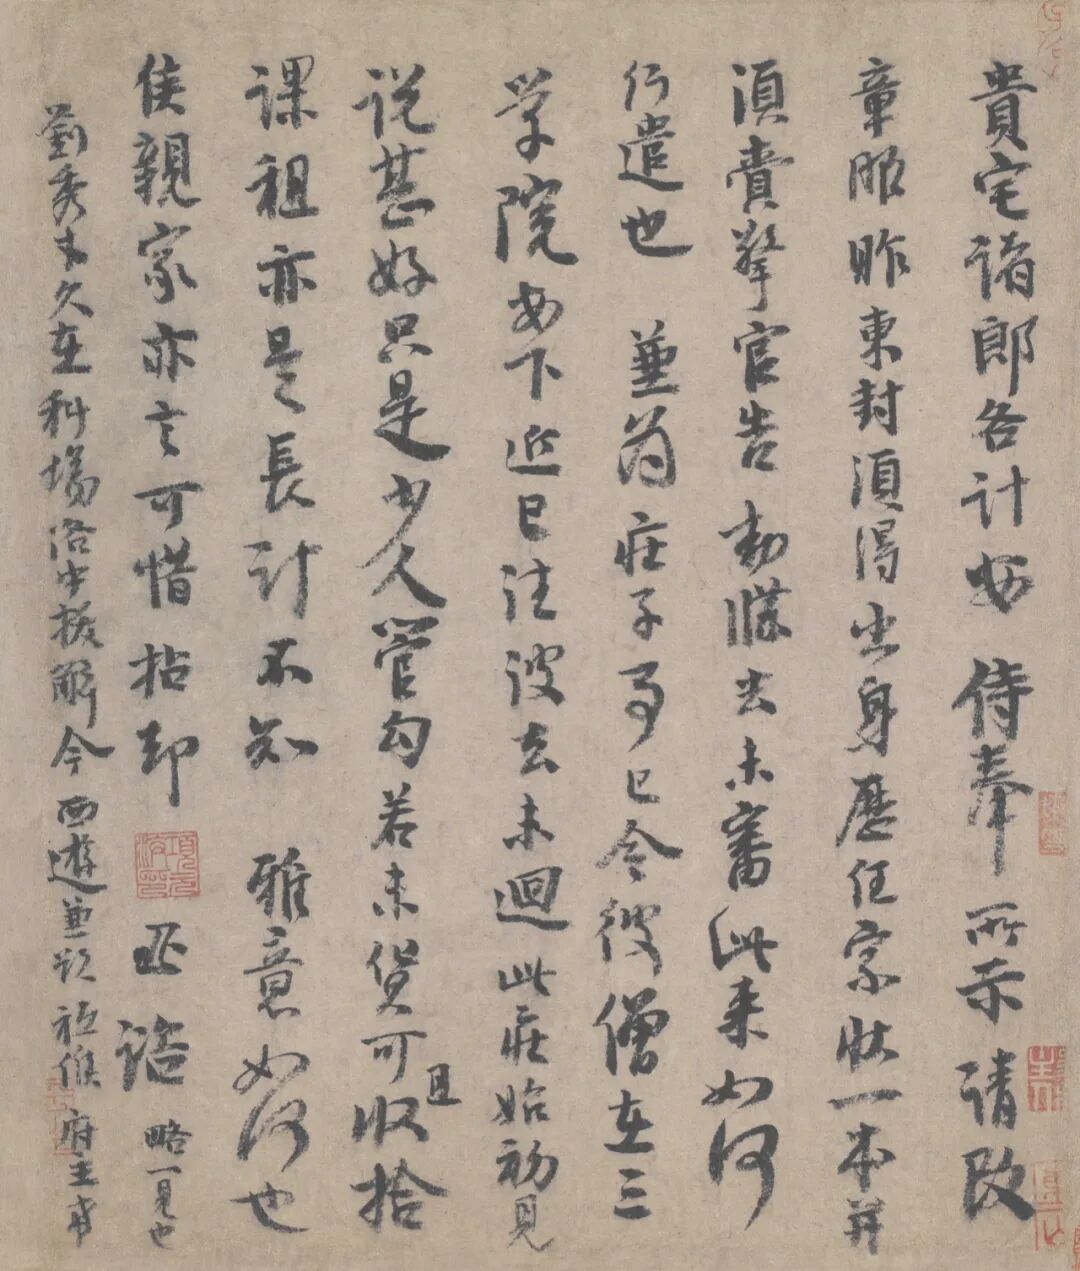 貴宅諸郎各計安 侍奉 所示請改
章服昨東封須得出身歷任家狀一本并
須賫擎官告勑牒去未審此来如何
行遣也 兼為莊子事已令彼僧在三
学院安下近已往彼去未迴此莊始初見
説甚好只是少人管勾若未貨可且收拾
課祖亦是長計不知 雅意如何也
侯親家亦言可惜拈却 諮 略一見也
劉秀才久在科場洛中拔解今西遊兼欲祗候府主